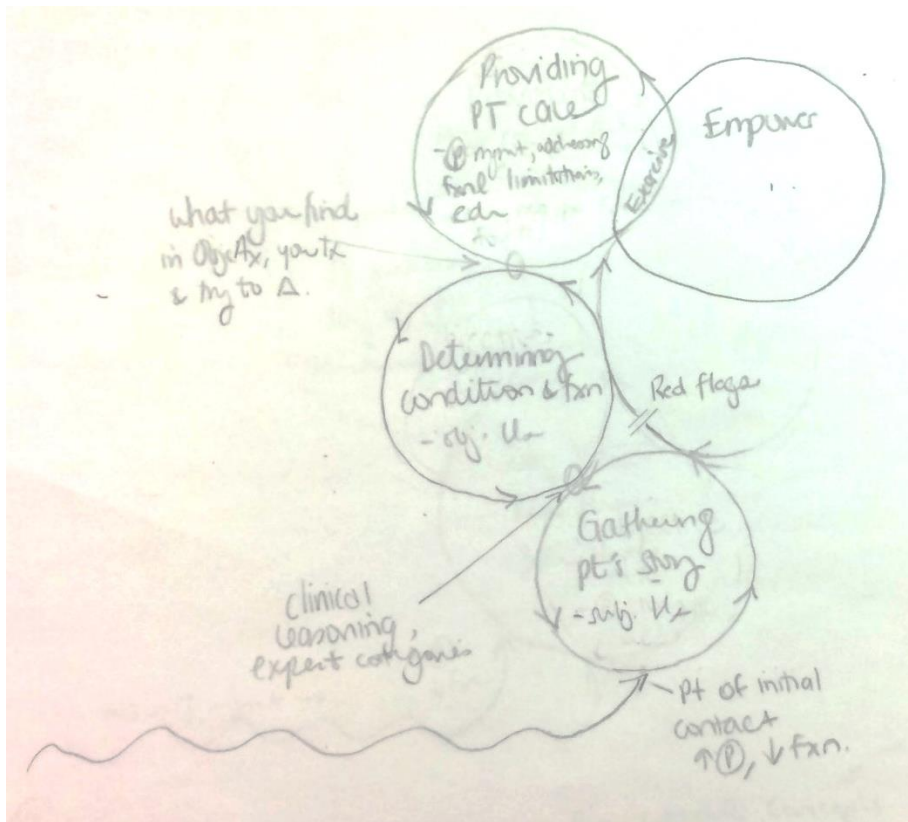 Providing
PT care
- Ⓟ mgmt, addressing
fxnl limitations,
edu
Exercise
Empower
what you find
in Obj Ax, you tx
& try to Δ.
Determining
condition & fxn
- subj. Hx
Red flags
Gathering
pt's story
- subj. Hx
Clinical
reasoning,
expert categories
pt of initial
contact
↑Ⓟ, ↓fxn.